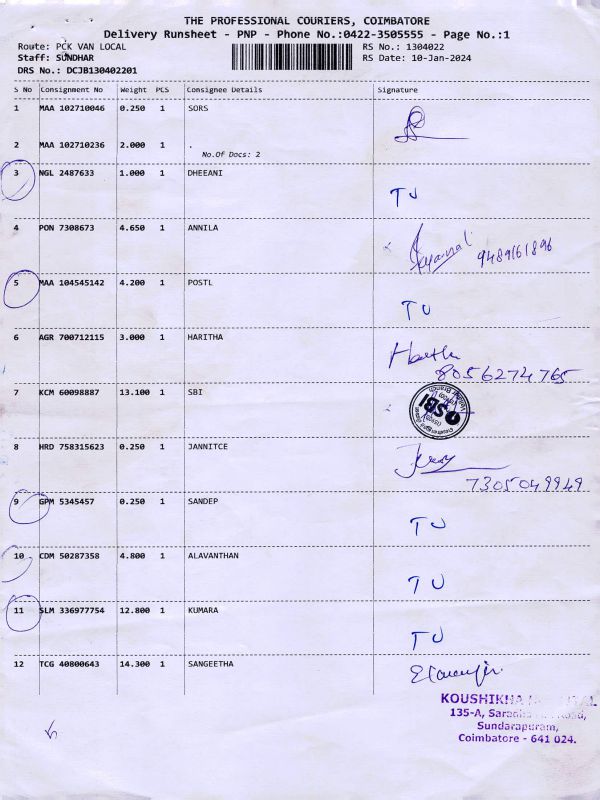 THE PROFESSIONAL COURIERS, COIMBATORE
Delivery Runsheet - PNP - Phone No.:0422-3505555 - Page No.:1
Route: PCK VAN LOCAL RS No.: 1304022
Staff: SUNDHAR RS Date: 10-Jan-2024
DRS No.: DCJB130402201
S No Consignment No Weight PCS Consignee Details Signature
1 MAA 102710046 0.250 1 SORS
2 MAA 102710236 2.000 1 .
No.Of Docs: 2
3 NGL 2487633 1.000 1 DHEEANI
TU
4 PON 7308673 4.650 1 ANNILA
9489161896
5 MAA 104545142 4.200 1 POSTL
TU
6 AGR 700712115 3.000 1 HARITHA
8056274765
7 KCM 60098887 13.100 1 SBI
SBI
8 HRD 758315623 0.250 1 JANNITCE
7305049949
9 GPM 5345457 0.250 1 SANDEP
TU
10 CDM 50287358 4.800 1 ALAVANTHAN
TU
11 SLM 336977754 12.800 1 KUMARA
TU
12 TCG 40800643 14.300 1 SANGEETHA
KOUSHIKHA
135-A, Road,
Sundarapuram,
Coimbatore - 641 024.